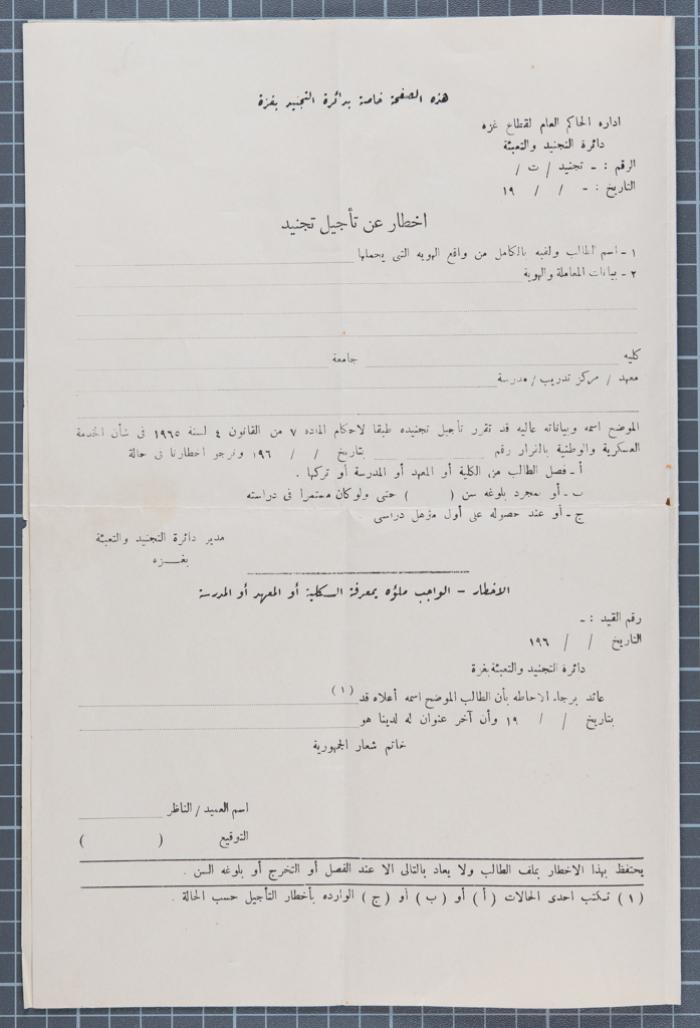 هذه الصفحة خاصة بدائرة التجنيد بغزة
اداره الحاكم العام لقطاع غزه
دائرة التجنيد والتعبئة
الرقم : - تجنيد / ت /
التاريخ : - / / ١٩
اخطار عن تأجيل تجنيد
١ - اسم الطالب ولقبه بالكامل من واقع الهويه التى يحملها
٢ - بيانات المعاملة والهوية
كليه جامعة
معهد / مركز تدريب / مدرسة
الموضح اسمه وبياناته عاليه قد تقرر تأجيل تجنيده طبقا لاحكام الماده ٧ من القانون ٤ لسنة ١٩٦٥ فى شأن الخدمة
العسكرية والوطنية بالقرار رقم بتاريخ / / ١٩٦ ونرجو اخطارنا فى حالة
أ - فصل الطالب من الكلية أو المعهد أو المدرسة أو تركها .
ب - أو بمجرد بلوغه سن ( ) حتى ولوكان مستمرا فى دراسته
ج - أو عند حصوله على أول مؤهل دراسى
مدير دائرة التجنيد والتعبئة
بغــزه
الاخطار - الواجب ملؤه بمعرفة الكلية أو المعهد أو المدرسة
رقم القيد : -
التاريخ / / ١٩٦
دائرة التجنيد والتعبئة بغزة
عائد برجاء الاحاطه بأن الطالب الموضح اسمه أعلاه قد (١)
بتاريخ / / ١٩ وأن آخر عنوان له لدينا هو
خاتم شعار الجمهورية
اسم العميد / الناظر
التوقيع ( )
يحتفظ بهذا الاخطار بملف الطالب ولا يعاد بالتالى الا عند الفصل أو التخرج أو بلوغه السن .
(١) تكتب احدى الحالات (أ) أو (ب) أو (ج) الوارده بأخطار التأجيل حسب الحالة .